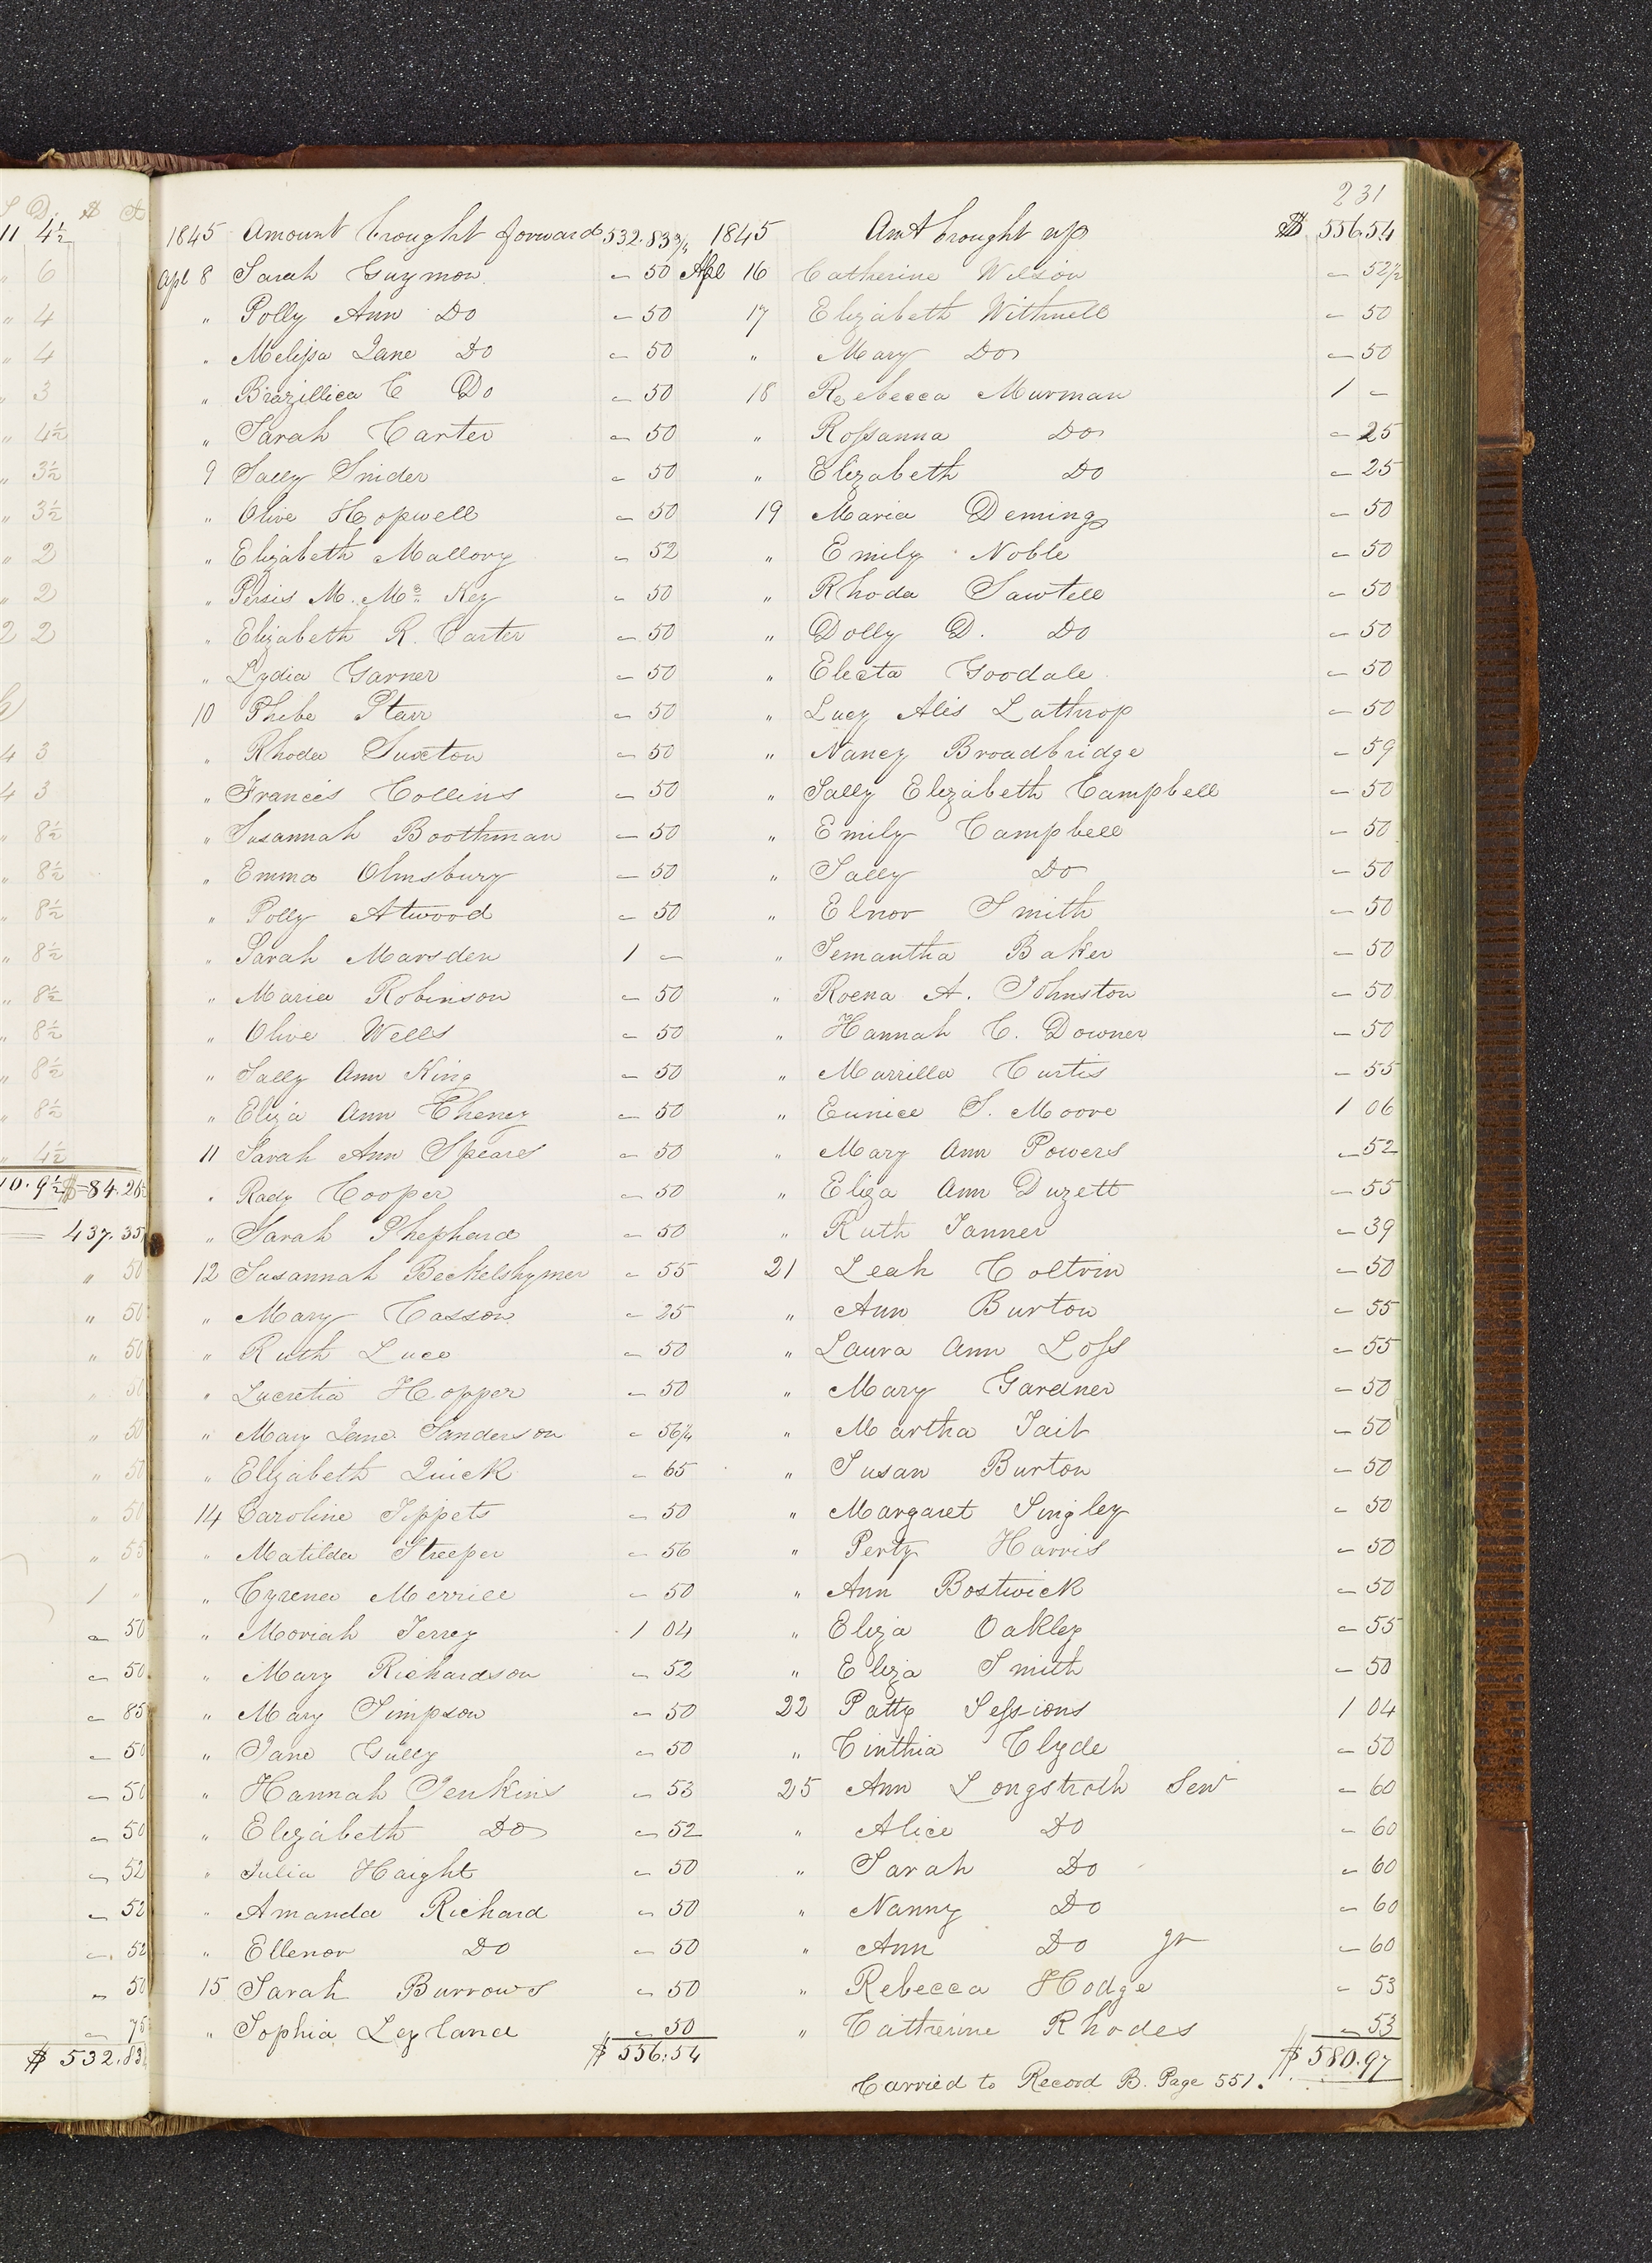 S D. $ Ct
11 4½
" 6
" 4
" 4
" 3
" 4½
" 3½
" 3½
" 2
" 2
2 2
4 3
4 3
" 8½
" 8½
" 8½
" 8½
" 8½
" 8½
" 8½
" 8½
" 4½
10. 9½ $84.26
437.35
" 50
" 50
" 50
" 50
" 50
" 50
" 50
" 55
1 "
- 50
- 50
- 85
- 50
- 50
- 50
- 52
- 52
- 52
- 50
- 75
$ 532.83
231
1845 Amount brought forward 532.83¾
Apl 8 Sarah Guymon - 50
" Polly Ann Do - 50
" Melissa Jane Do - 50
" Brazillica C Do - 50
" Sarah Carter - 50
9 Sally Snider - 50
" Olive Hopwell - 50
" Elizabeth Mallory - 52
" Persis M. Mc Key - 50
" Elizabeth R. Carter - 50
" Lydia Garner - 50
10 Phebe Starr - 50
" Rhoda Suxton - 50
" Francis Collins - 50
" Susannah Boothman - 50
" Emma Olmsbury - 50
" Polly Atwood - 50
" Sarah Marsden 1 -
" Maria Robinson - 50
" Olive Wells - 50
" Sally Ann King - 50
" Eliza Ann Cheney - 50
11 Sarah Ann Speares - 50
" Rady Cooper - 50
" Sarah Shephard - 50
12 Susannah Beckelshymer - 55
" Mary Casson - 25
" Ruth Luce - 50
" Lucretia Hopper - 50
" Mary Jane Sanderson - 56¼
" Elizabeth Quick - 65
14 Caroline Tippets - 50
" Matilda Streeper - 56
" Cyrenea Merrill - 50
" Moriah Terrey 1 04
" Mary Richardson - 52
" Mary Simpson - 50
" Jane Gully - 50
" Hannah Jenkins - 53
" Elizabeth Do - 52
" Julia Haight - 50
" Amanda Richard - 50
" Ellenor Do - 50
15 Sarah Burrows - 50
" Sophia Leyland - 50
$ 556.54
1845 Amt brought up $ 556.54
Apl 16 Catherine Wilson - 52½
17 Elizabeth Withnell - 50
" Mary Do - 50
18 Rebecca Murman 1 -
" Rossanna Do - 25
" Elizabeth Do - 25
19 Maria Deming - 50
" Emily Noble - 50
" Rhoda Sawtell - 50
" Dolly D. Do - 50
" Electa Goodale - 50
" Lucy Alis Lathrop - 50
" Nancy Broadbridge - 59
" Sally Elizabeth Campbell - 50
" Emily Campbell - 50
" Sally Do - 50
" Elnor Smith - 50
" Semantha Baker - 50
" Roena A. Johnston - 50
" Hannah C. Downer - 50
" Marrilla Curtis - 55
" Eunice S. Moore 1 06
" Mary Ann Powers - 52
" Eliza Ann Duzett - 55
" Ruth Tanner - 39
21 Leah Coltrin - 50
" Ann Burton - 55
" Laura Ann Loss - 55
" Mary Gardner - 50
" Martha Tait - 50
" Susan Burton - 50
" Margaret Singley - 50
" Perty Harris - 50
" Ann Bostwick - 50
" Eliza Oakley - 55
" Eliza Smith - 50
22 Patty Sessions 1 04
" Cinthia Clyde - 50
25 Ann Longstroth Senr - 60
" Alice Do - 60
" Sarah Do - 60
" Nanny Do - 60
" Ann Do Jr - 60
" Rebecca Hodge - 53
" Catherine Rhodes - 53
$ 580.97
Carried to Record B. Page 551.